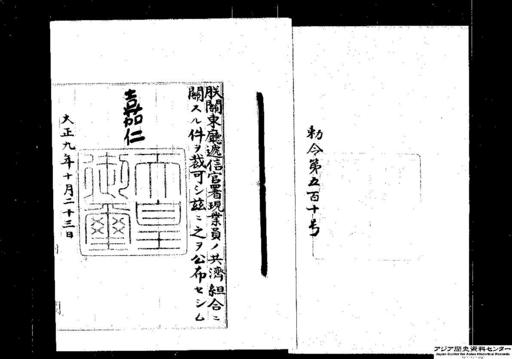 勅令第五百十号
朕關東廳遞信官署現業員ノ共濟組合ニ
關スル件ヲ裁可シ茲ニ之ヲ公布セシム
嘉仁
天皇
御璽
大正九年十月二十三日
アジア歴史資料センター
Japan Center for Asian Historical Records